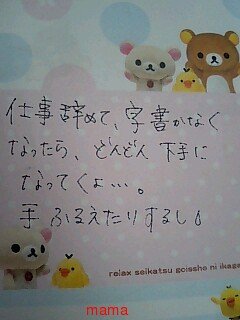 仕事辞めて、字書かなく
なったら、どんどん下手に
なってくょ…。
手ふるえたりするし
relax seikatsu goissho ni ikaga
mama